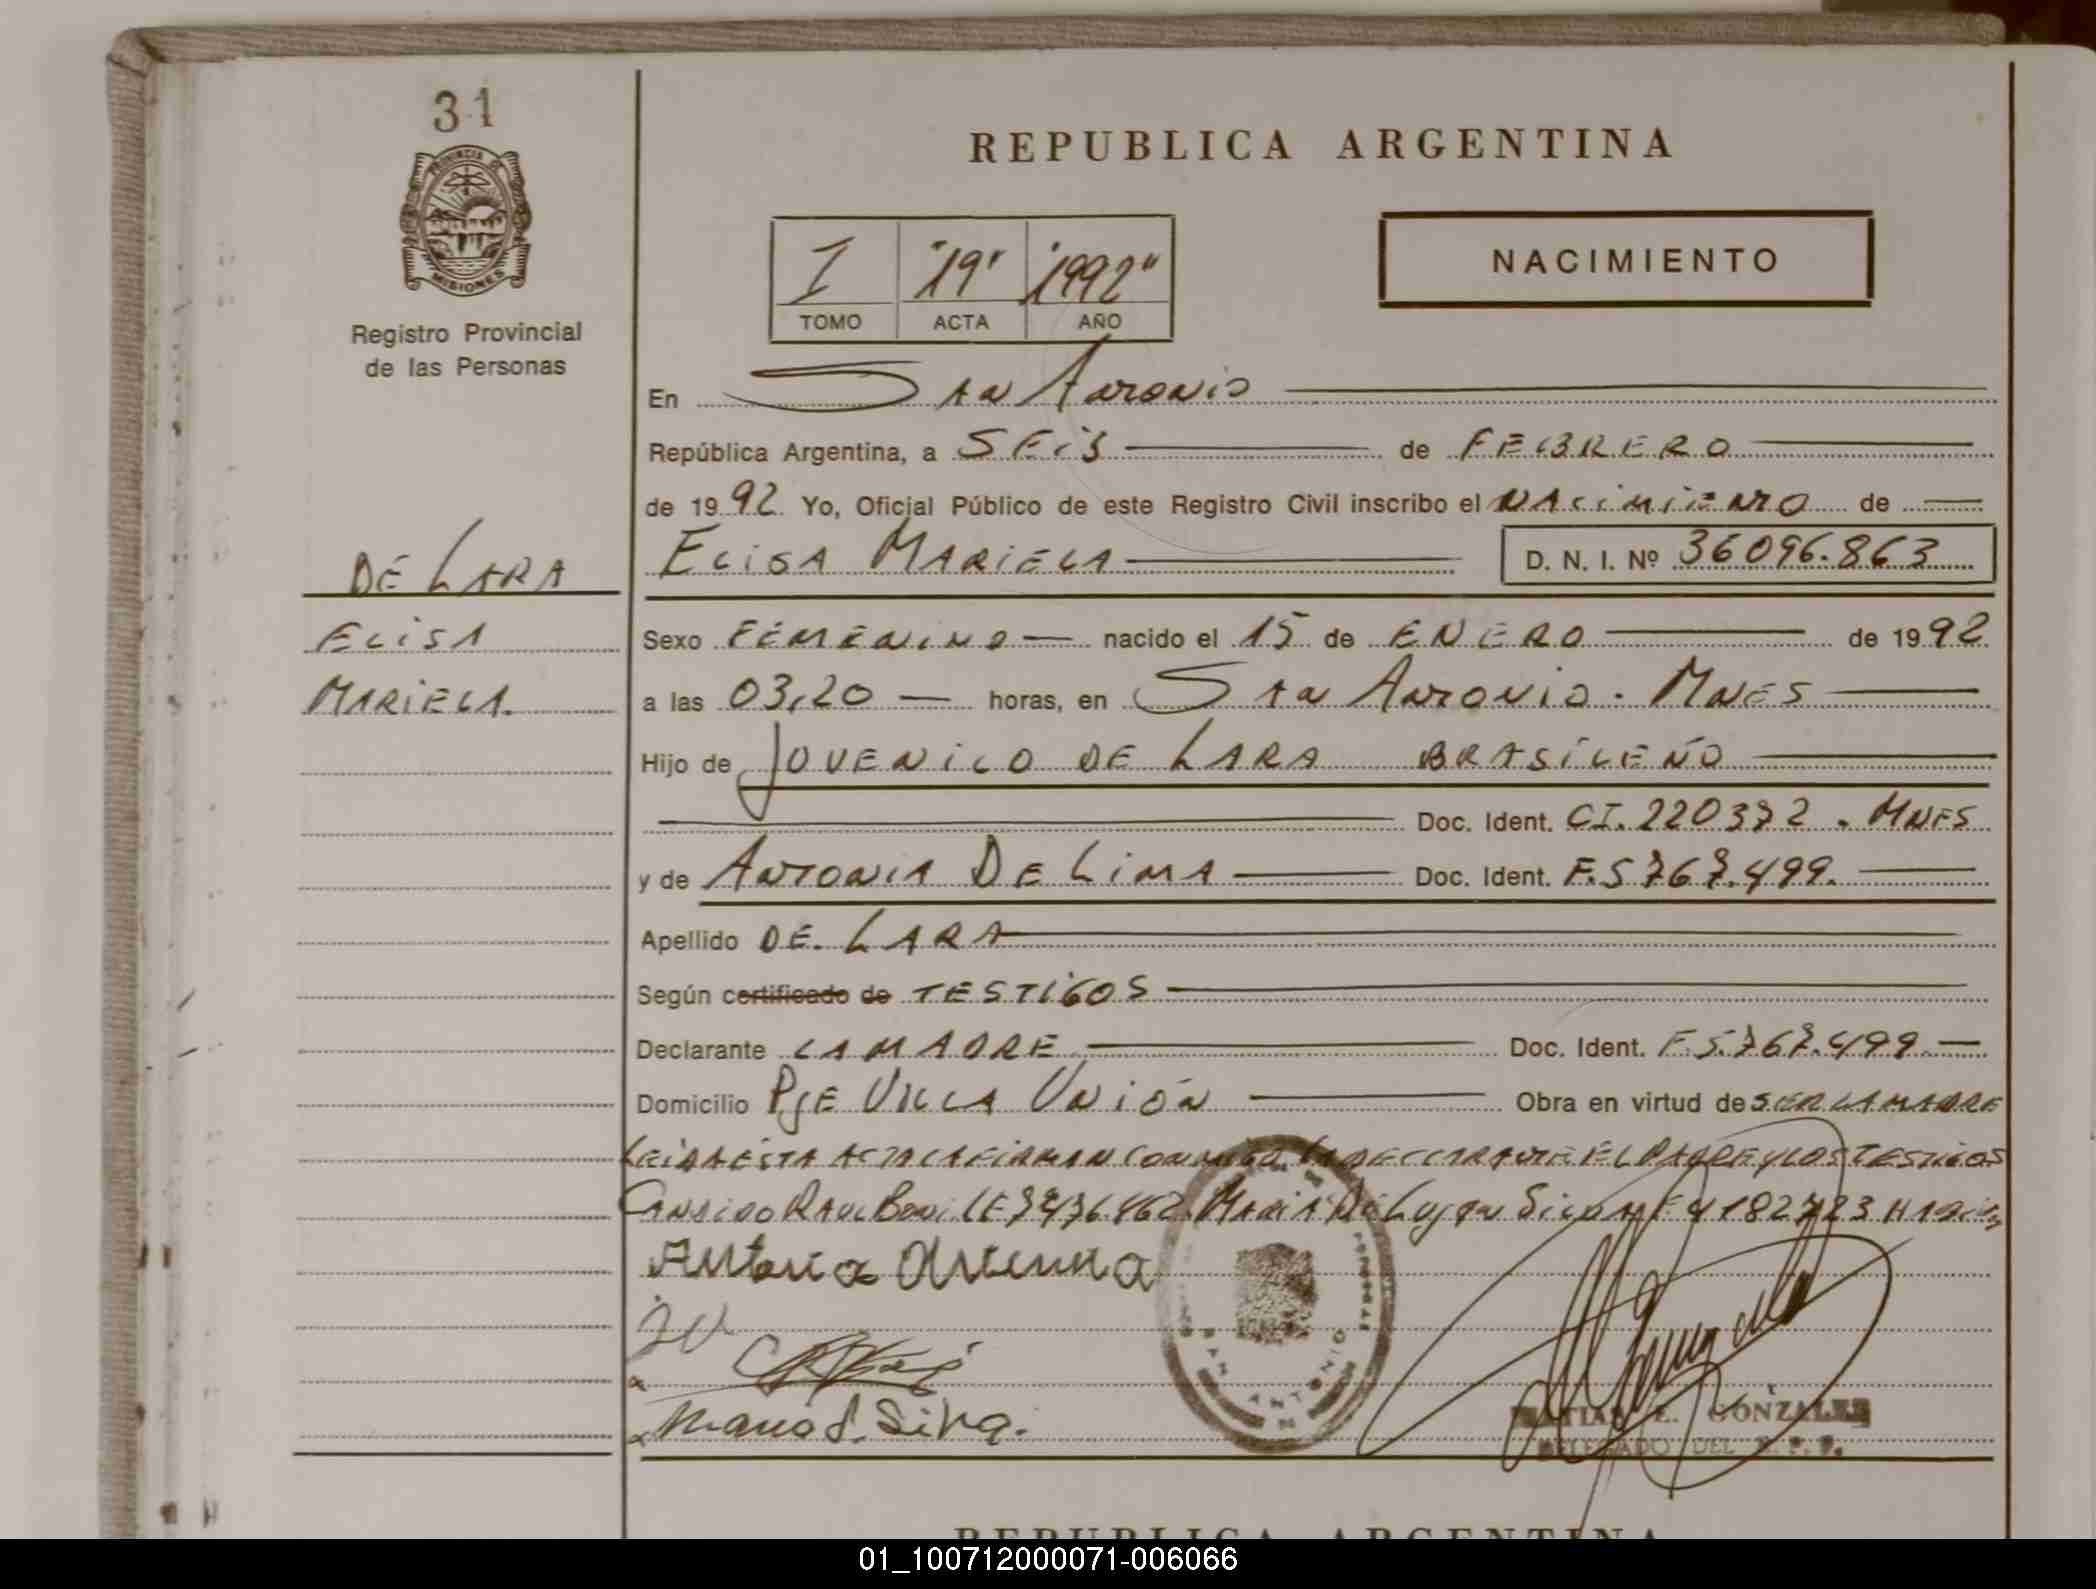 31
PROVINCIA DE
MISIONES
Registro Provincial
de las Personas
REPUBLICA ARGENTINA
I "19" "1992"
TOMO ACTA AÑO
NACIMIENTO
En San Antonio
República Argentina, a SEIS de FEBRERO
de 1992 Yo, Oficial Público de este Registro Civil inscribo el NACIMIENTO de
DE LARA
ELISA MARIELA D. N. I. Nº 36096.863
ELISA
Sexo FEMENINO nacido el 15 de ENERO de 1992
MARIELA.
a las 03,20 horas, en SAN ANTONIO. MNES
Hijo de JOVENILO DE LARA BRASILEÑO
Doc. Ident. CI. 220372. MNES
y de ANTONIA DE LIMA Doc. Ident. F.5767.499.
Apellido DE LARA
Según certificado de TESTIGOS
Declarante LA MADRE Doc. Ident. F.5.767.499.
Domicilio PJE VILLA UNIÓN Obra en virtud de SER LA MADRE
LEIDA ESTA ACTA LA FIRMAN CONMIGO LA DECLARANTE EL PADRE Y LOS TESTIGOS
RAUL MARIA DE Lujan Silva
Antonia
SAN ANTONIO
Maria d. Silva.
MATIAS E. GONZALEZ
DELEGADO DEL R. P. P.
REPUBLICA ARGENTINA
01_100712000071-006066